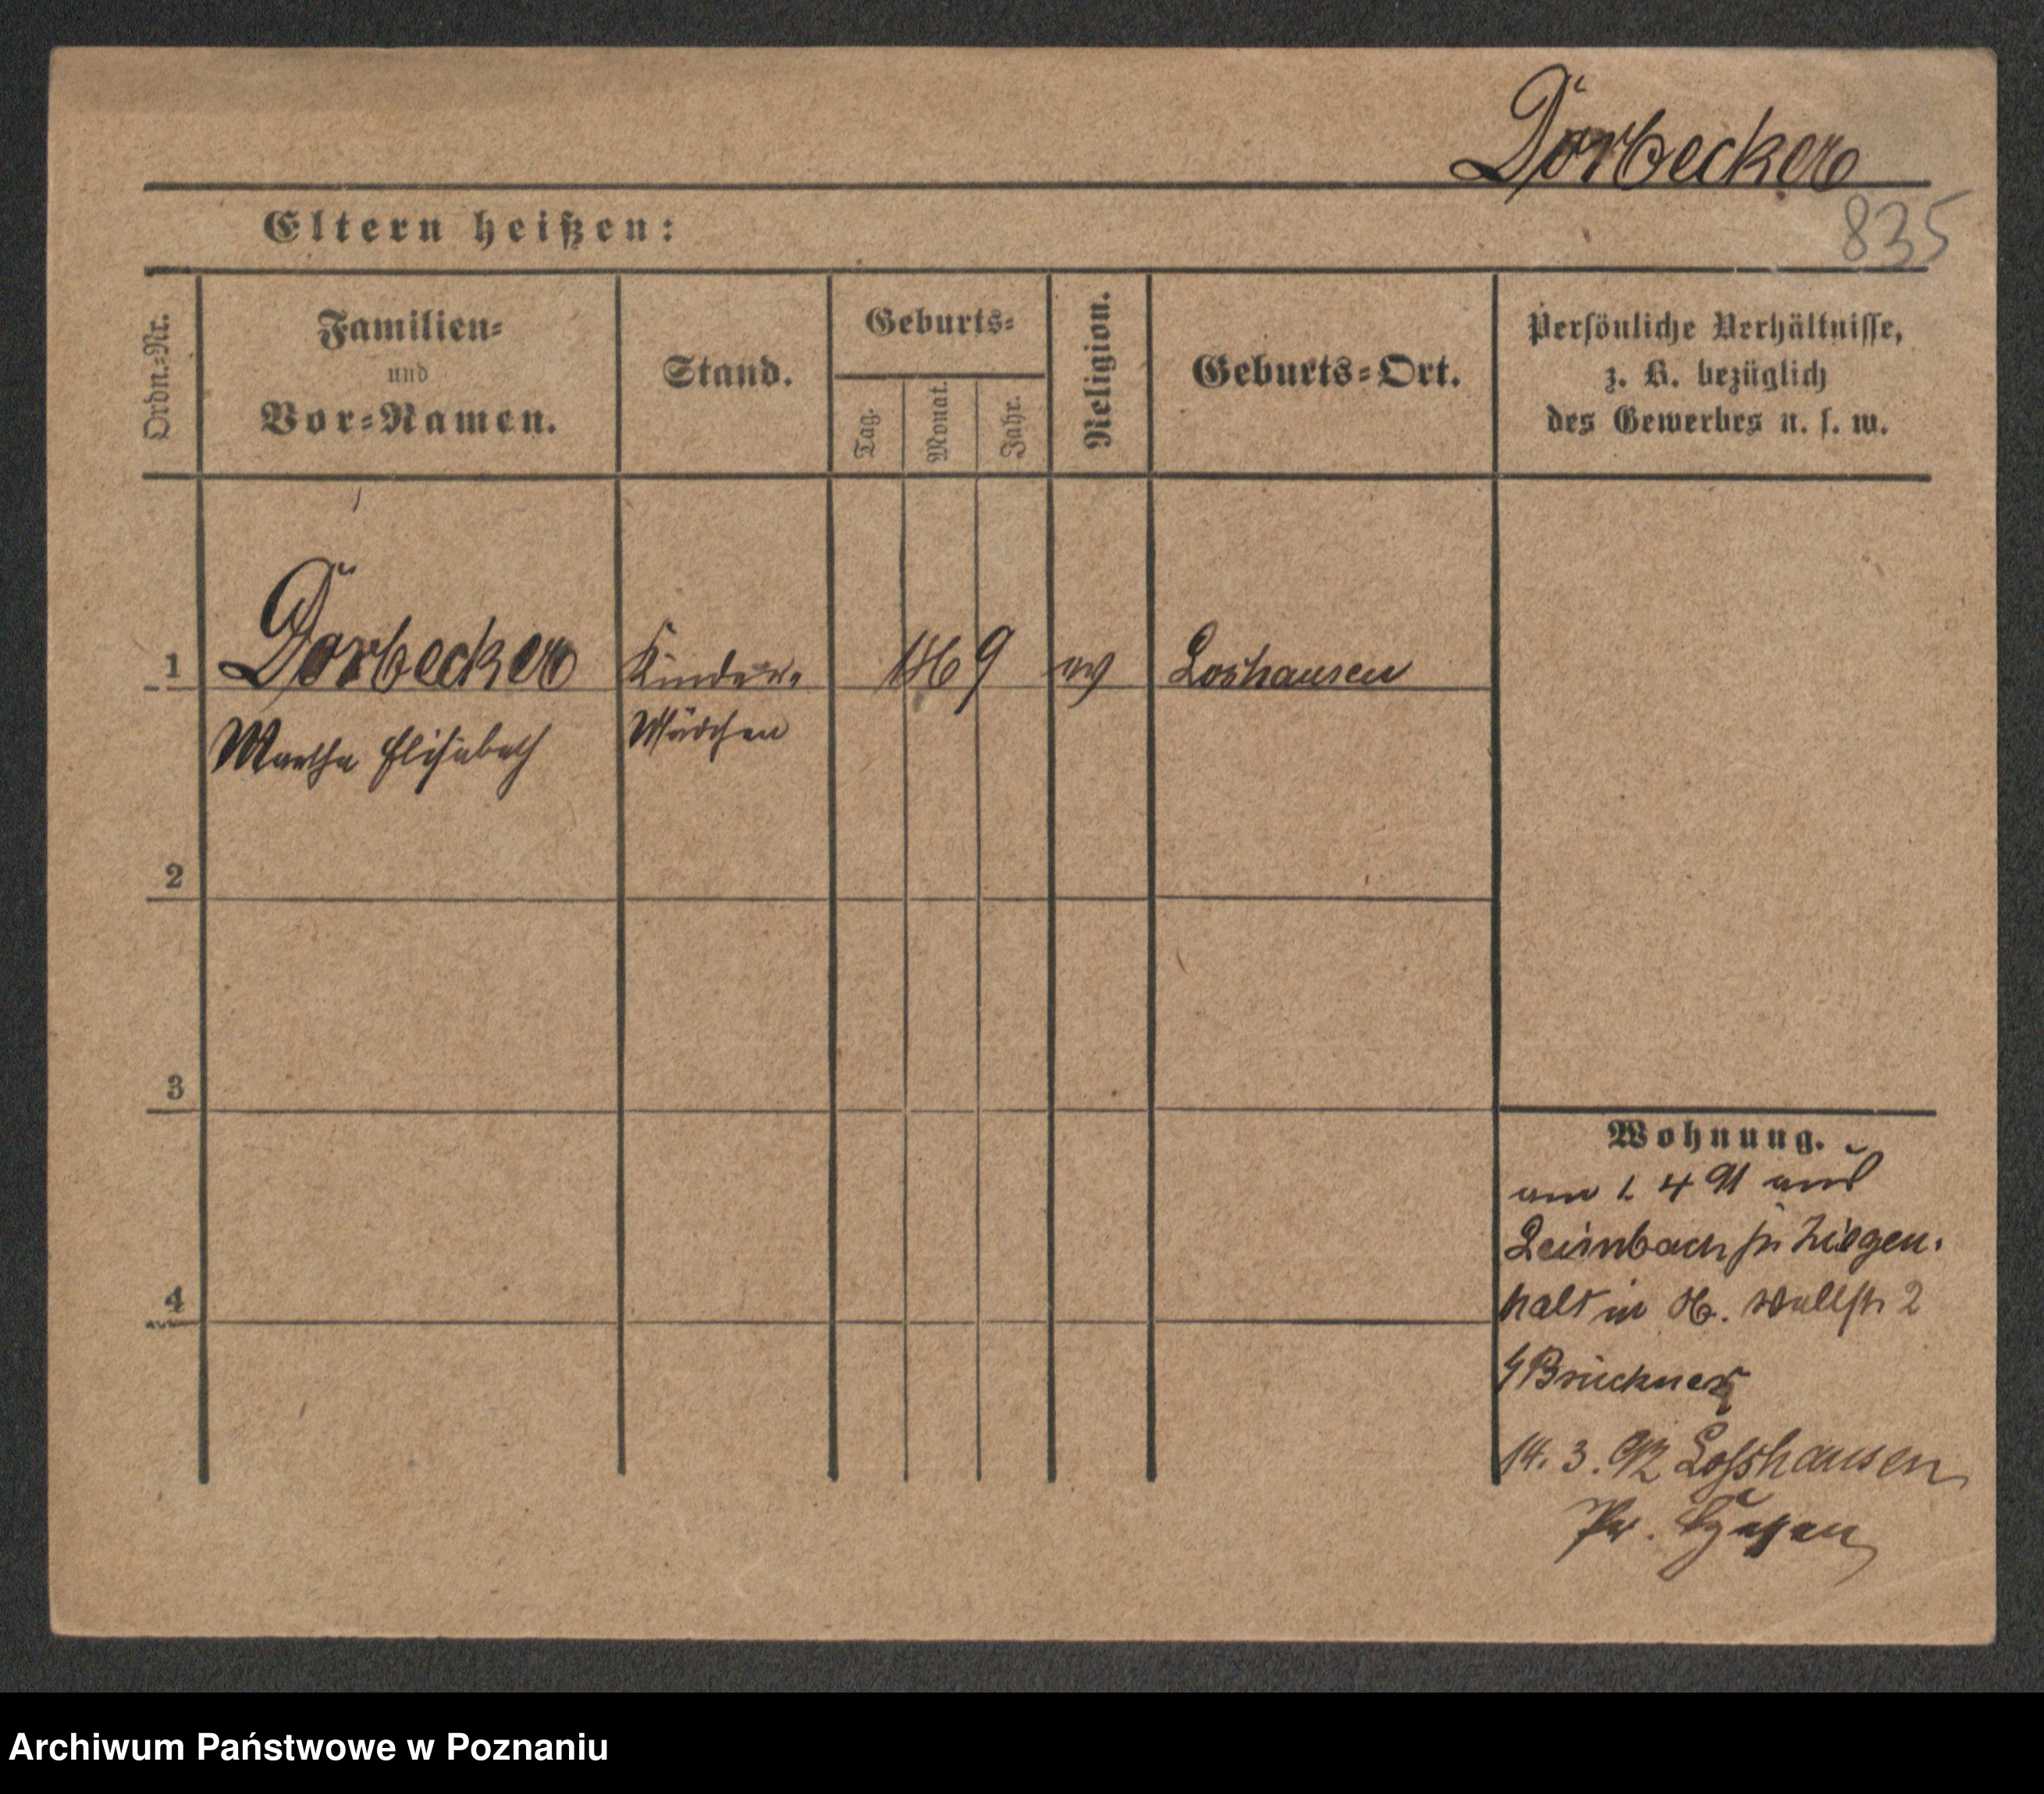 Dörbecker
835
Eltern heißen:
Ordn.=Nr.
Familien=
und
Vor=Namen.
Stand.
Geburts=
Tag.
Monat.
Jahr.
Religion.
Geburts=Ort.
Persönliche Verhältnisse,
z. B. bezüglich
des Gewerbes u. s. w.
1
Dörbecker
Kinder-
1869
ev
Loshausen
Martha Elisabeth
Mädchen
2
3
4
Wohnung.
am 1 4 91 aus
Leimbach Ziegen-
hain Wallstr 2
Brückner
14. 3. 92 Losshausen
Pr.
Archiwum Państwowe w Poznaniu